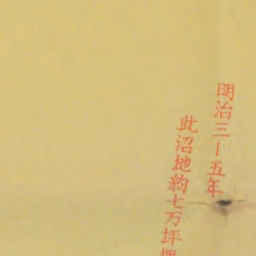 明治三一五年
此沼地約七万坪